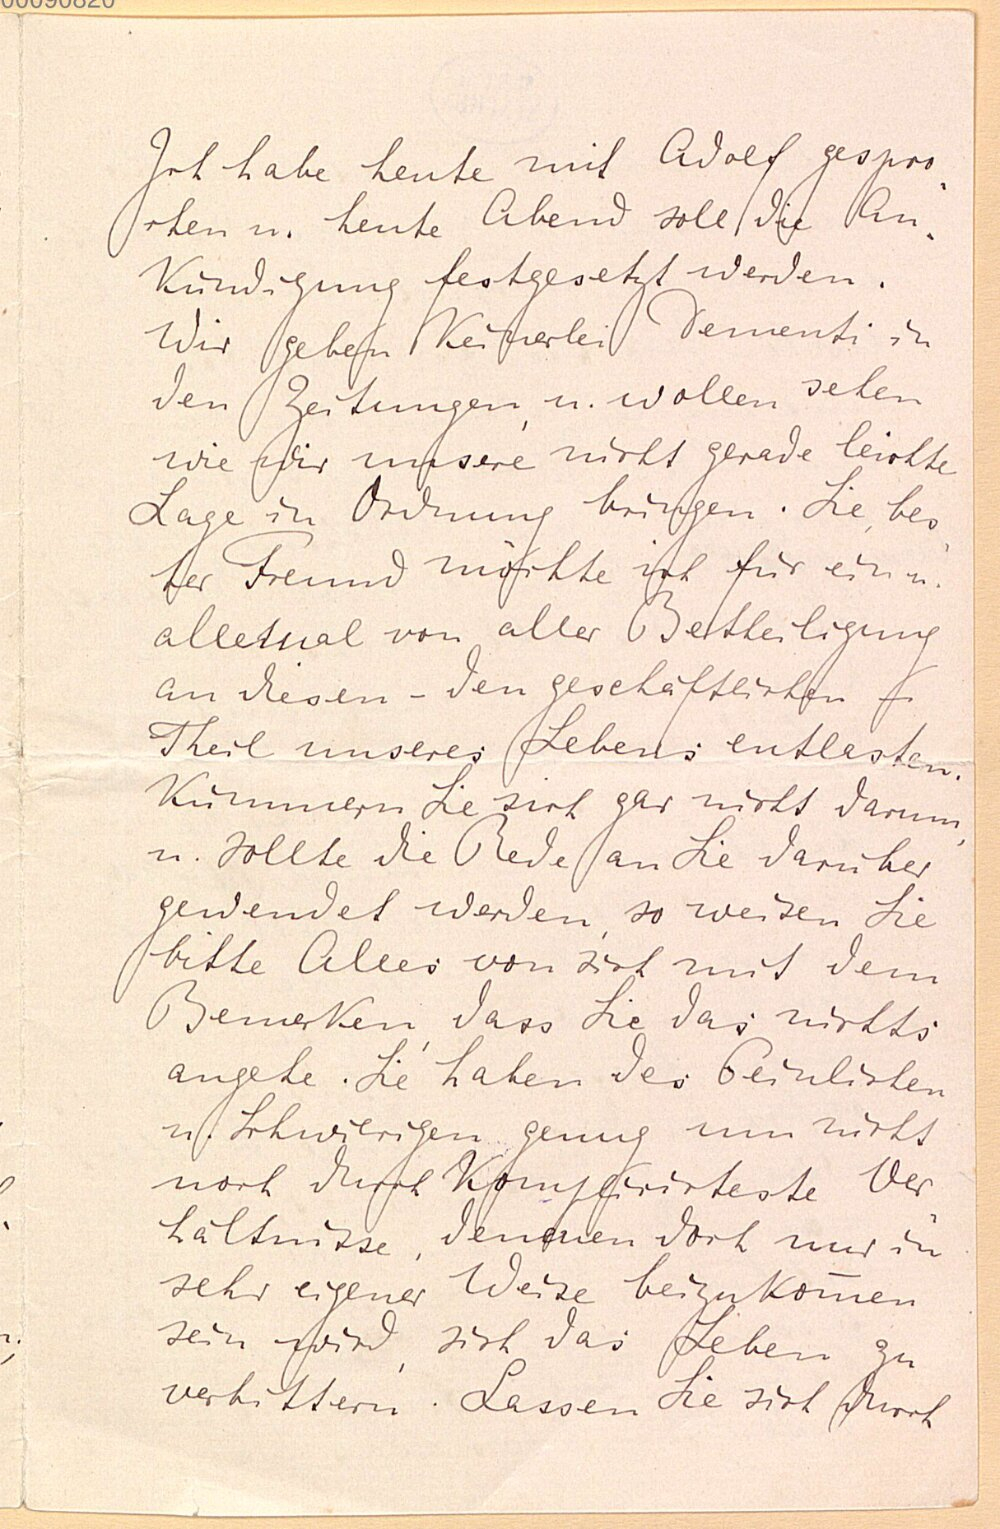 00090820
Ich habe heute mit Adolf gespro-
chen u. heute Abend soll die An-
kündigung festgesetzt werden.
Wir geben keinerlei Dementi in
den Zeitungen, u. wollen sehen
wie wir unsere nicht gerade leichte
Lage in Ordnung bringen. Sie, bes-
ter Freund möchte ich für ein u.
allemal von aller Betheiligung
an diesen – den geschäftlichen –
Theil unseres Lebens entlasten.
Kümmern Sie sich gar nicht darum,
u. sollte die Rede an Sie darüber
gewendet werden, so weisen Sie
bitte Alles von sich mit dem
Bemerken, dass Sie das nichts
angehe. Sie haben des Peinlichen
u. Schwierigen genug um nicht
noch durch Komplicirteste Ver
hältnisse, denen doch nur in
sehr eigener Weise beizukom̄en
sein wird, sich das Leben zu
verbittern. Lassen Sie sich durch